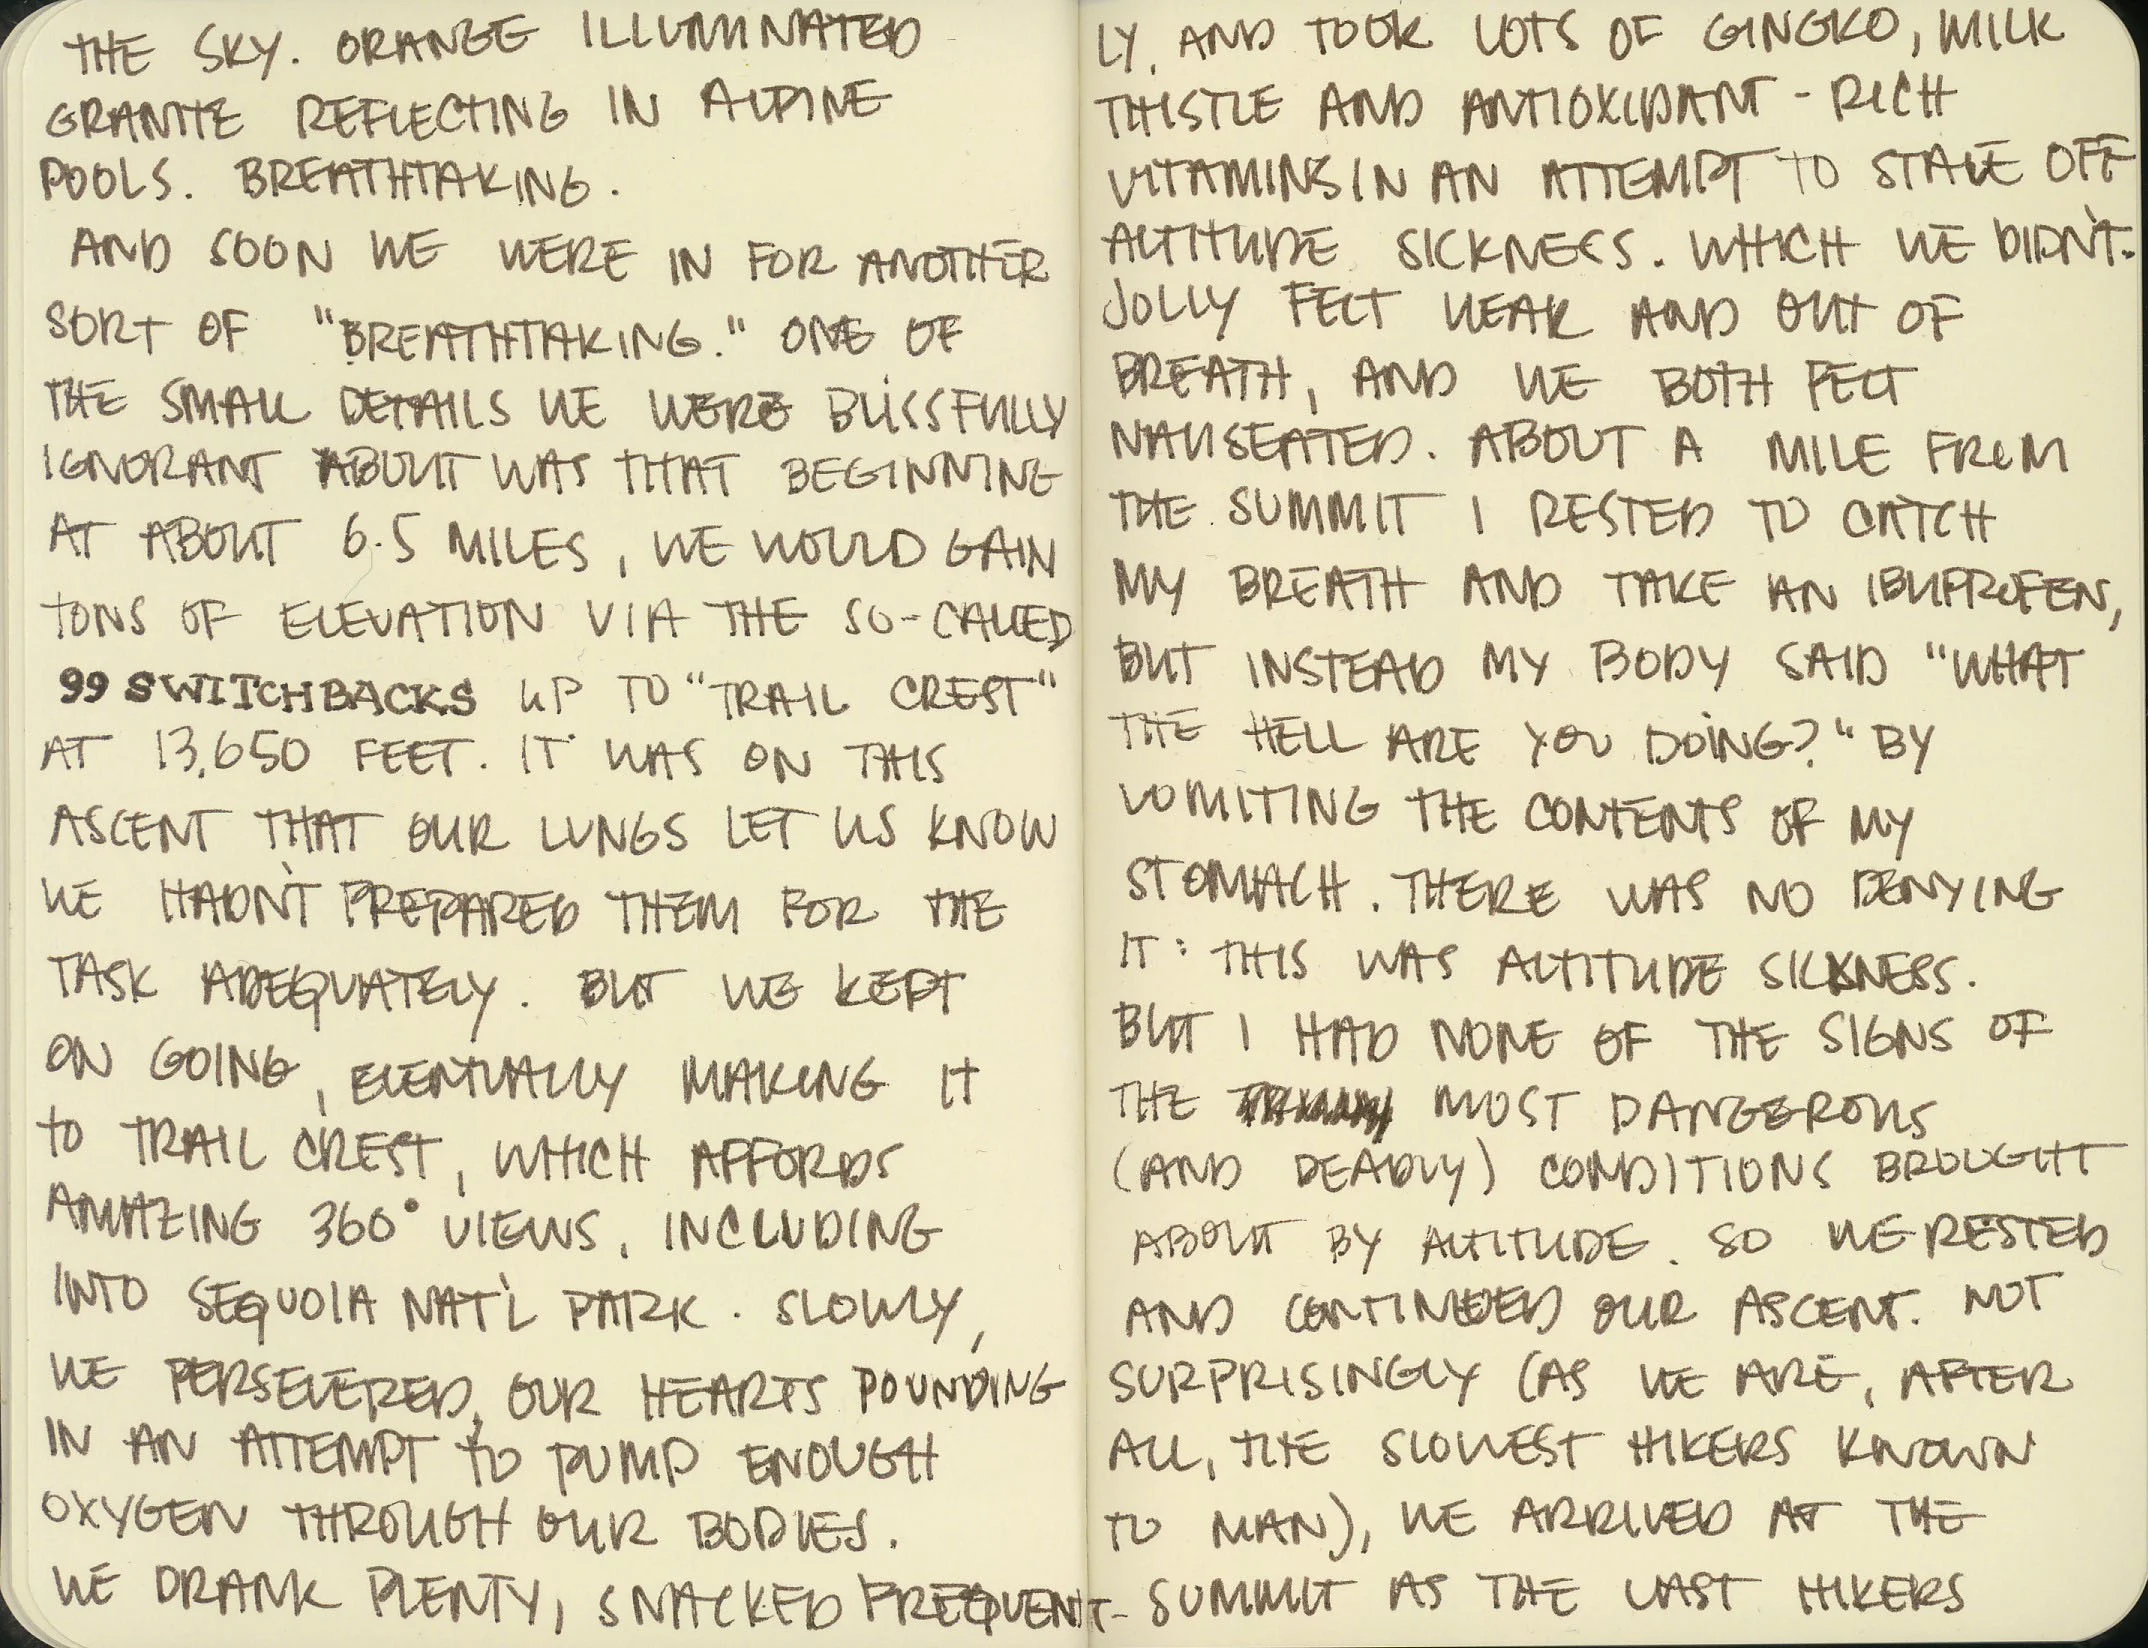 THE SKY. ORANGE ILLUMINATED
GRANITE REFLECTING IN ALPINE
POOLS. BREATHTAKING.
AND SOON WE WERE IN FOR ANOTHER
SORT OF "BREATHTAKING." ONE OF
THE SMALL DETAILS WE WERE BLISSFULLY
IGNORANT ABOUT WAS THAT BEGINNING
AT ABOUT 6.5 MILES, WE WOULD GAIN
TONS OF ELEVATION VIA THE SO-CALLED
99 SWITCHBACKS UP TO "TRAIL CREST"
AT 13,650 FEET. IT WAS ON THIS
ASCENT THAT OUR LUNGS LET US KNOW
WE HADN'T PREPARED THEM FOR THE
TASK ADEQUATELY. BUT WE KEPT
ON GOING, EVENTUALLY MAKING IT
TO TRAIL CREST, WHICH AFFORDS
AMAZING 360° VIEWS, INCLUDING
INTO SEQUOIA NAT'L PARK. SLOWLY,
WE PERSEVERED, OUR HEARTS POUNDING
IN AN ATTEMPT TO PUMP ENOUGH
OXYGEN THROUGH OUR BODIES.
WE DRANK PLENTY, SNACKED FREQUENT-
LY, AND TOOK LOTS OF GINGKO, MILK
THISTLE AND ANTIOXIDANT-RICH
VITAMINS IN AN ATTEMPT TO STAVE OFF
ALTITUDE SICKNESS. WHICH WE DIDN'T.
JOLLY FELT WEAK AND OUT OF
BREATH, AND WE BOTH FELT
NAUSEATED. ABOUT A MILE FROM
THE SUMMIT I RESTED TO CATCH
MY BREATH AND TAKE AN IBUPROFEN,
BUT INSTEAD MY BODY SAID "WHAT
THE HELL ARE YOU DOING?" BY
VOMITING THE CONTENTS OF MY
STOMACH. THERE WAS NO DENYING
IT: THIS WAS ALTITUDE SICKNESS.
BUT I HAD NONE OF THE SIGNS OF
THE MOST DANGEROUS
(AND DEADLY) CONDITIONS BROUGHT
ABOUT BY ALTITUDE. SO WE RESTED
AND CONTINUED OUR ASCENT. NOT
SURPRISINGLY (AS WE ARE, AFTER
ALL, THE SLOWEST HIKERS KNOWN
TO MAN), WE ARRIVED AT THE
SUMMIT AS THE LAST HIKERS